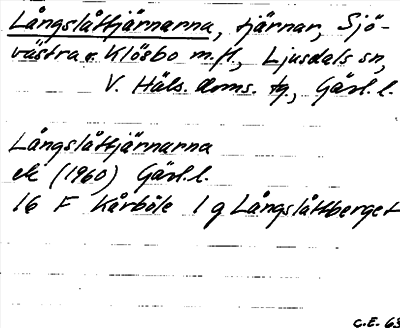 Långslåttjärnarna, tjärnar, Sjö-
västra o. Klösbo m.fl., Ljusdals sn,
V. Häls. doms. tg, Gävl. l.
Långslåttjärnarna
ek (1960) Gävl. l.
16 F Kårböle 1 g Långslåttberget
C.E. 63